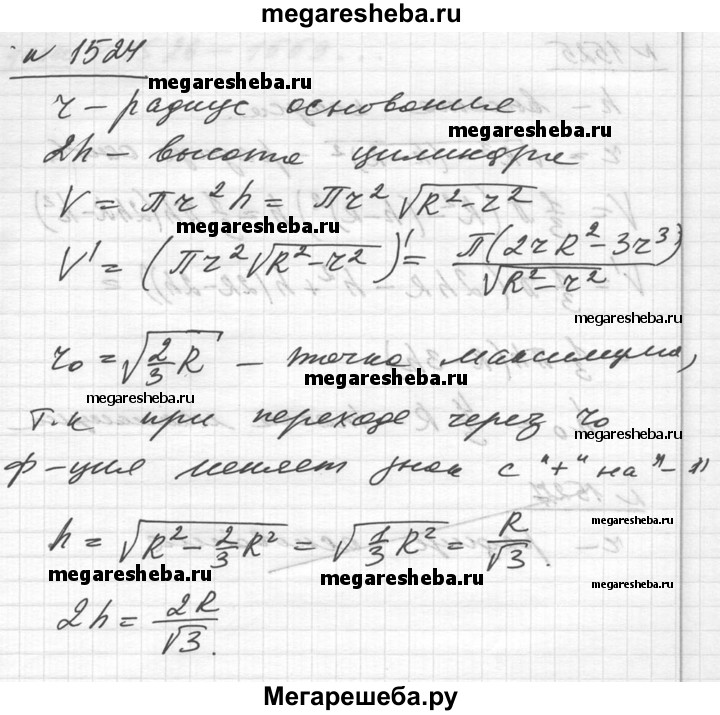 megaresheba.ru
№ 1524
megaresheba.ru
r – радиус основания
megaresheba.ru
2h – высота цилиндра
V = πr²h = πr²√(R²-r²)
megaresheba.ru
V' = (πr²√(R²-r²))' = π(2rR²-3r³)/√(R²-r²)
megaresheba.ru
r₀ = √(2/3 R) – точка максимума,
megaresheba.ru
megaresheba.ru
т.к при переходе через r₀
megaresheba.ru
ф-ция меняет знак с "+" на "-"
h = √(R² - 2/3 R²) = √(1/3 R²) = R/√3.
megaresheba.ru
megaresheba.ru
megaresheba.ru
2h = 2R/√3.
megaresheba.ru
Мегарешеба.ру